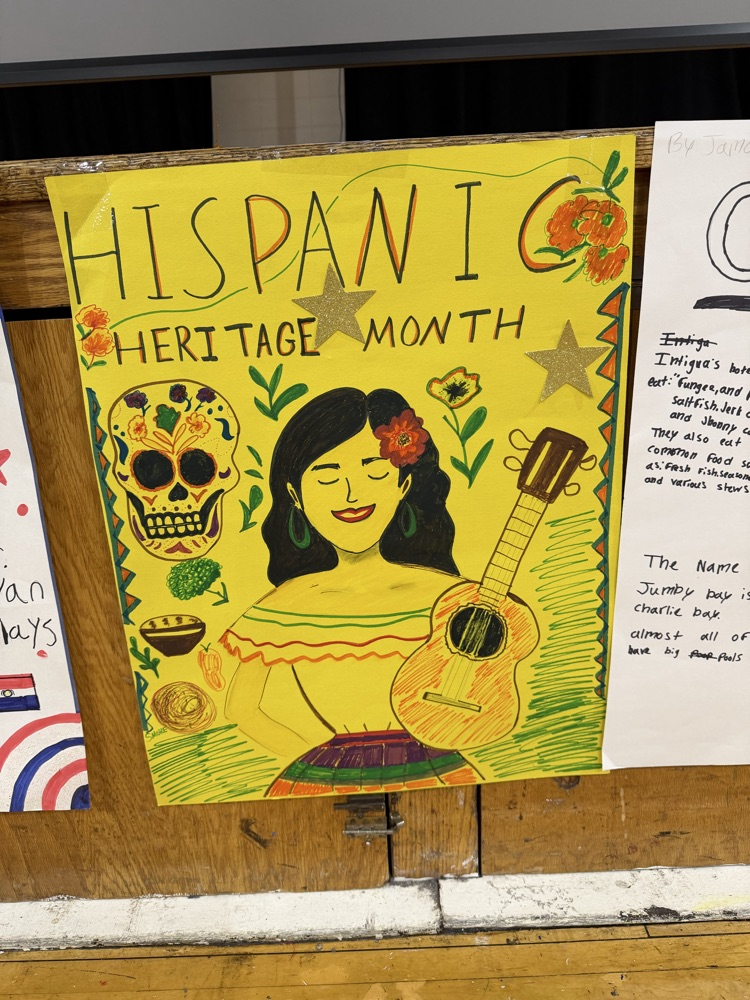 HISPANIC
HERITAGE MONTH
By
Intigua
Intigua's
eat: "Fungee, and
saltfish, Jerk
and Jhonny
They also eat
common food
as: Fresh fish, season
and various stews
The Name
Jumby bay is
charlie bay.
almost all of
have big pools